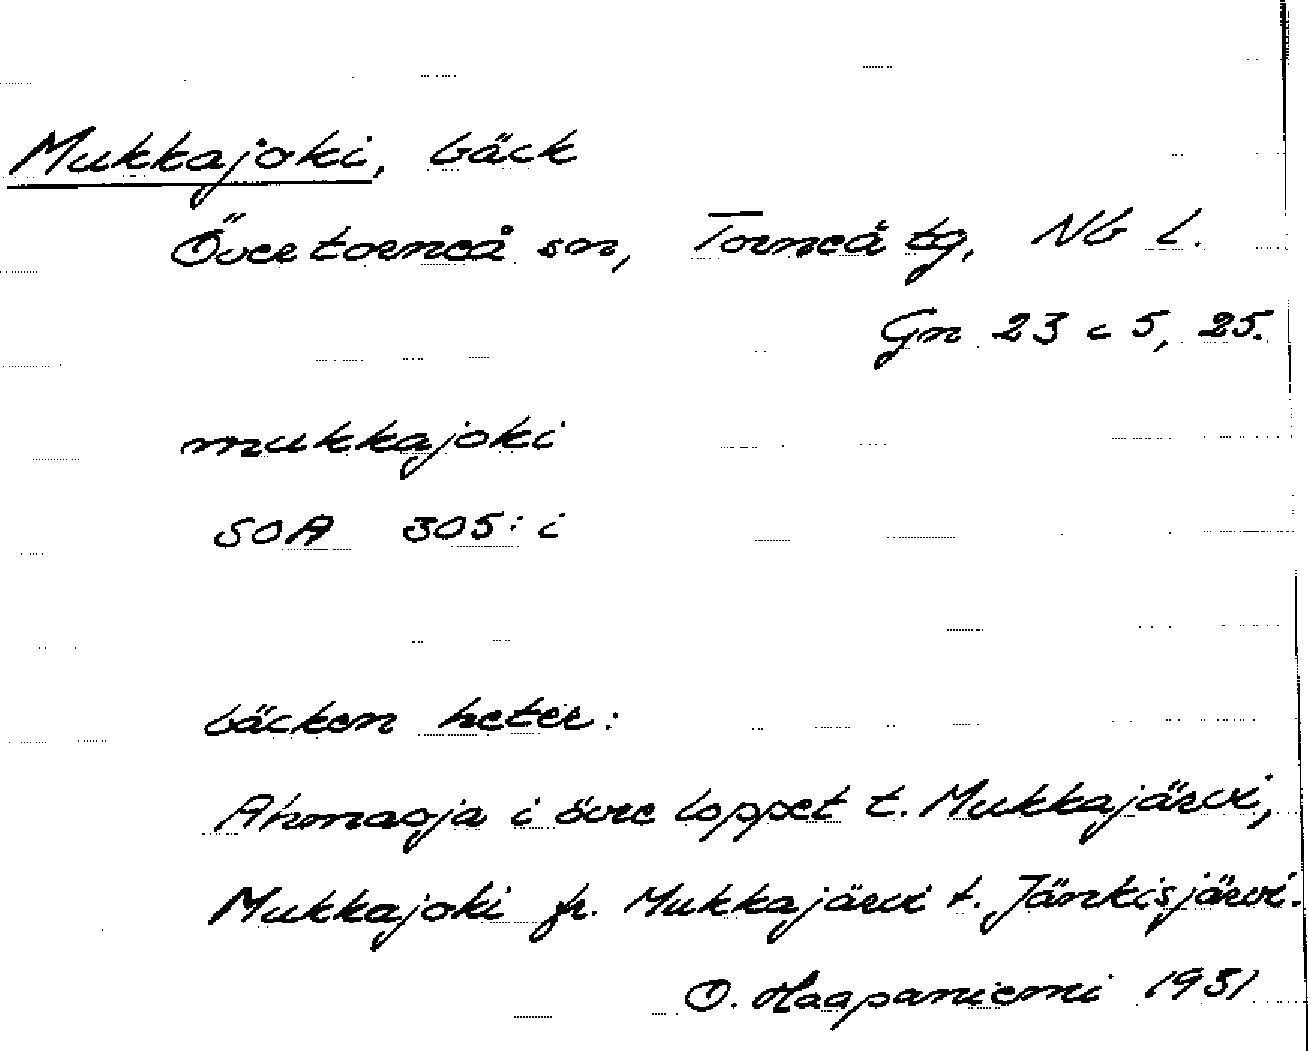 Mukkajoki, bäck
Övertorneå sn, Torneå tg, NB L.
Gn 23 c 5, 25.
mukkajoki
SOA 305: i
bäcken heter:
Ahmaoja i övre loppet t. Mukkajärvi,
Mukkajoki fr. Mukkajärvi t. Jänkisjärvi.
O. Haapaniemi 1931